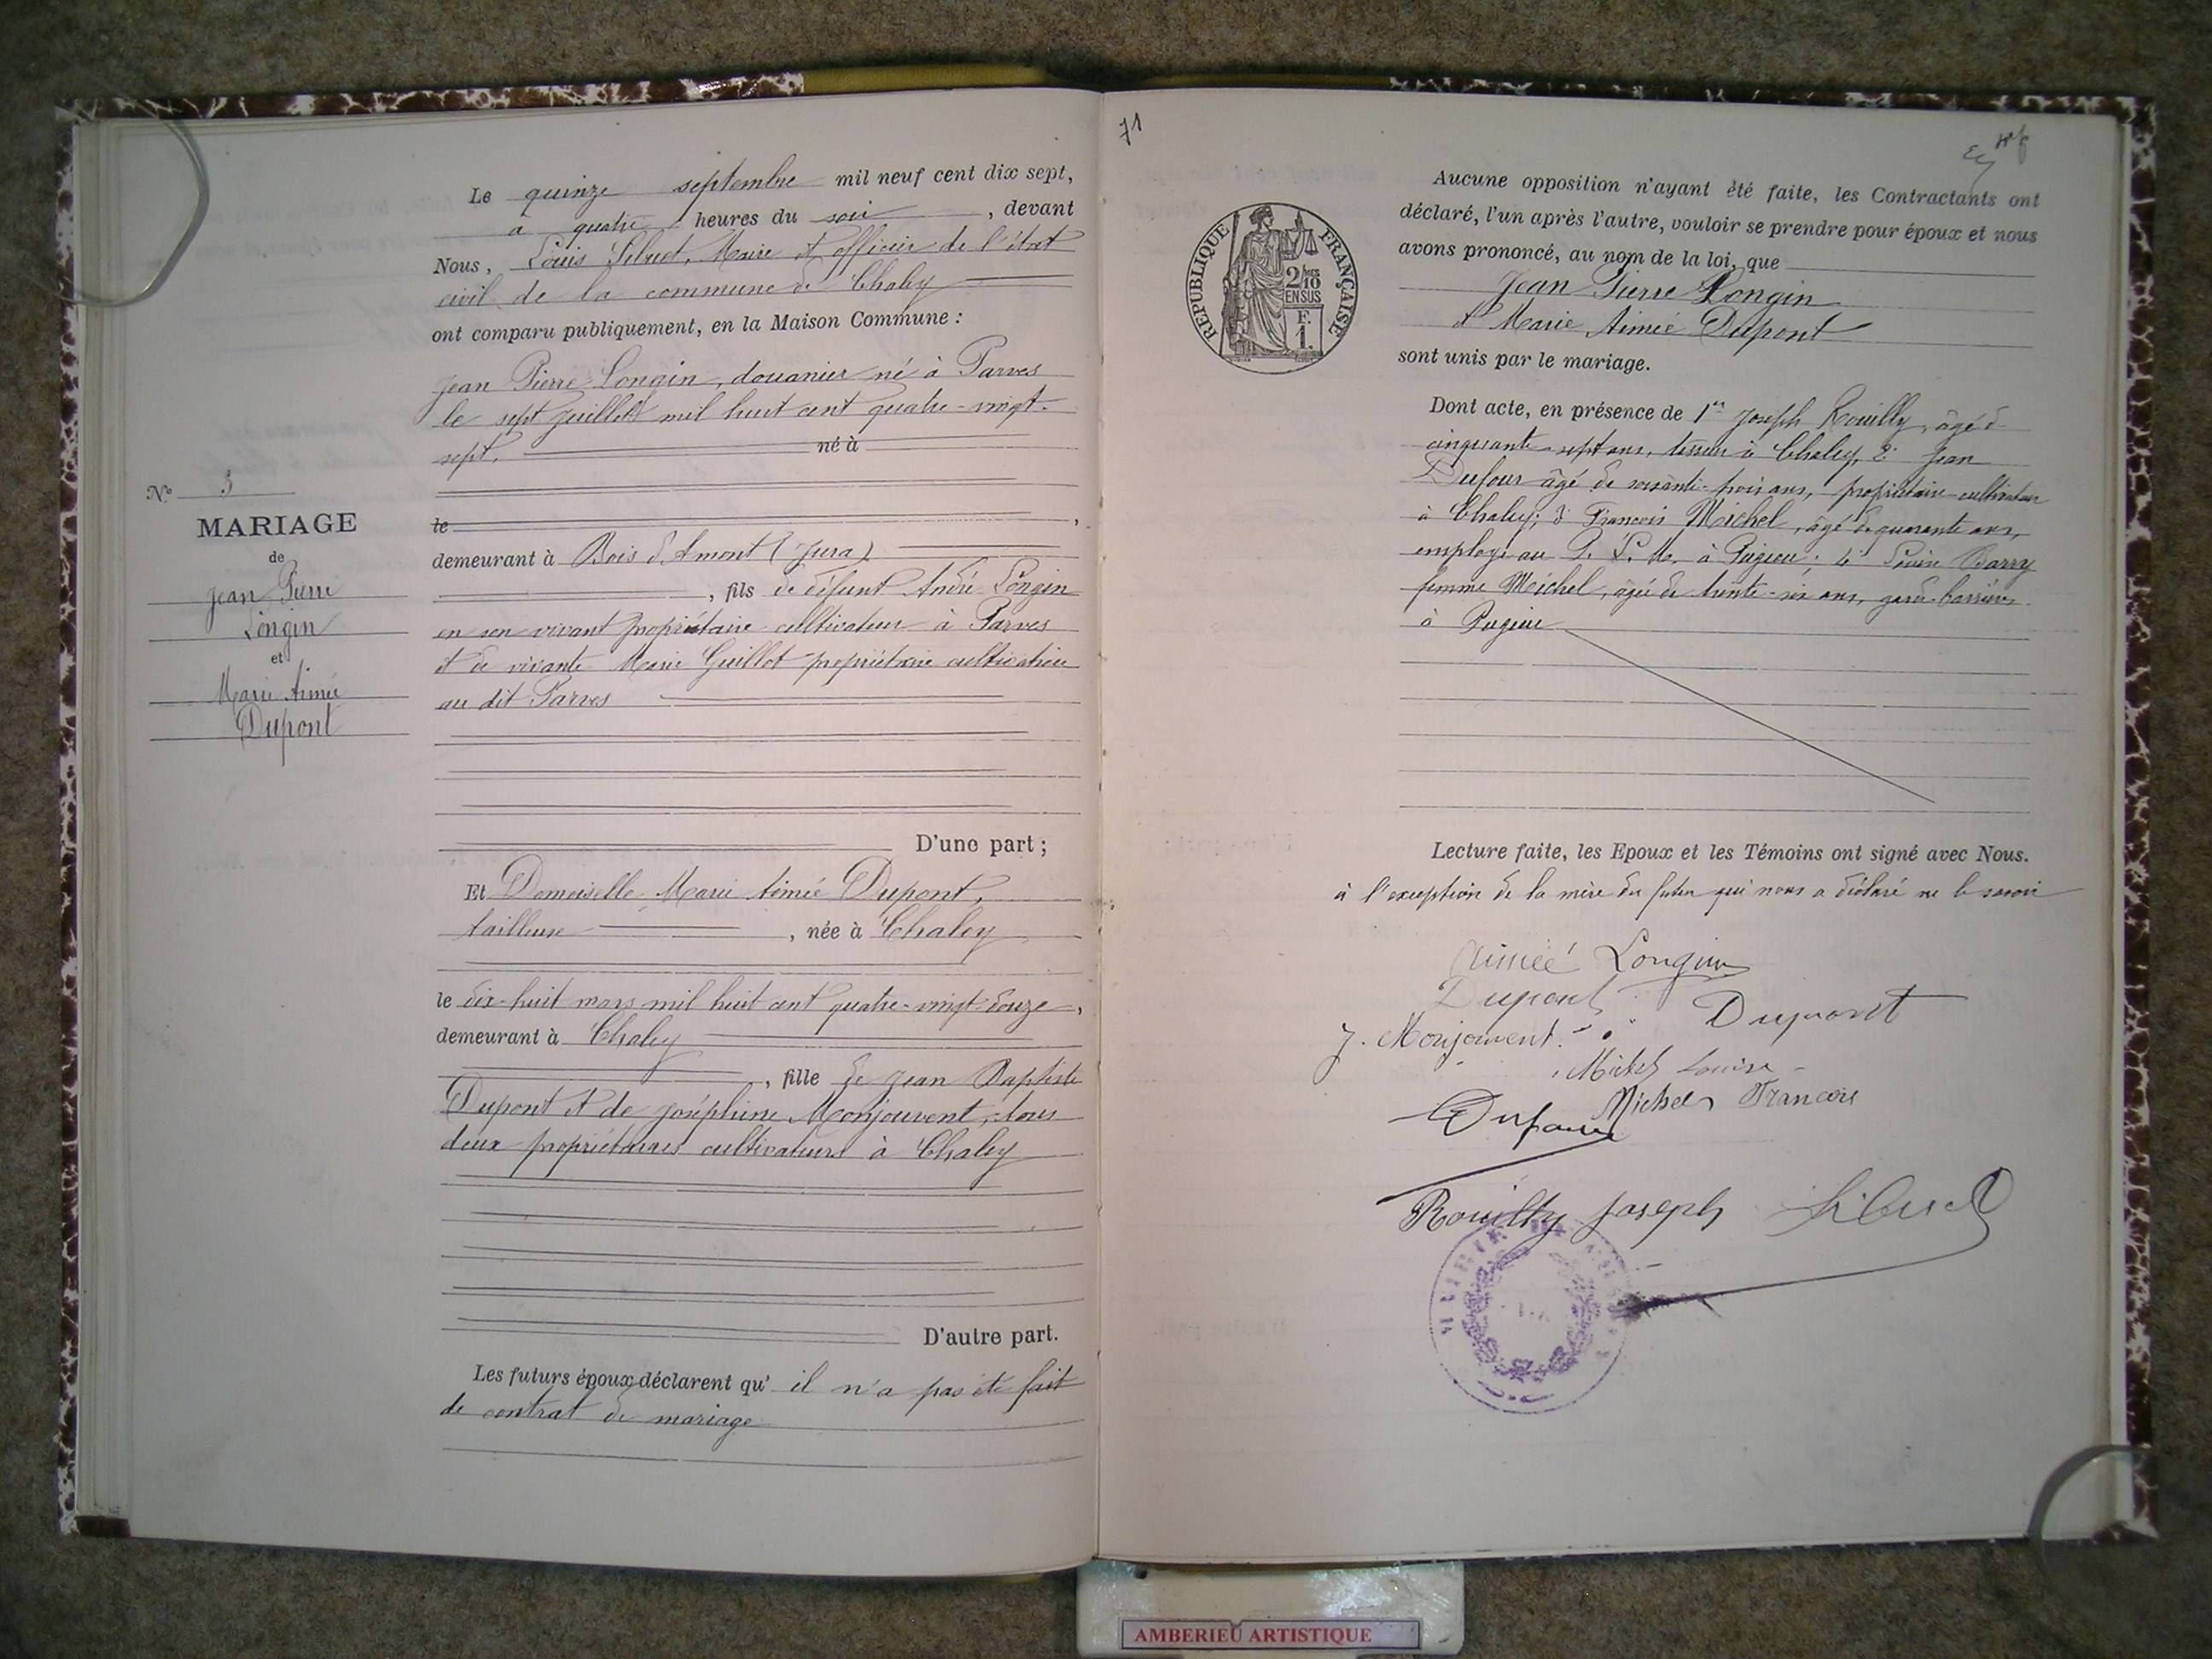 Le quinze septembre mil neuf cent dix sept,
à quatre heures du soir, devant
Nous, Louis Maire et officier de l'état
civil de la commune de Chaley
ont comparu publiquement, en la Maison Commune :
Jean Pierre Longin, douanier né à Parves
le sept juillet mil huit cent quatre-vingt-
sept. né à
le ,
demeurant à Bois d'Amont (Jura)
, fils de défunt André Longin
en son vivant propriétaire cultivateur à Parves
et de vivante Marie Guillot propriétaire cultivatrice
au dit Parves
D'une part ;
Et Demoiselle Marie Aimée Dupont,
tailleuse , née à Chaley
le dix-huit mars mil huit cent quatre-vingt-douze,
demeurant à Chaley
, fille de Jean Baptiste
Dupont et de Joséphine Monjouvent, tous
deux propriétaires cultivateurs à Chaley
D'autre part.
Les futurs époux déclarent qu' il n'a pas été fait
de contrat de mariage
N° 3
MARIAGE
de
Jean Pierre
Longin
et
Marie Aimée
Dupont
71
RÉPUBLIQUE FRANÇAISE
2/10
EN SUS
F.
1.
Aucune opposition n'ayant été faite, les Contractants ont
déclaré, l'un après l'autre, vouloir se prendre pour époux et nous
avons prononcé, au nom de la loi, que
Jean Pierre Longin
et Marie Aimée Dupont
sont unis par le mariage.
Dont acte, en présence de 1er Joseph Rouilly, âgé de
cinquante-sept ans, tisseur à Chaley, 2° Jean
Dufour âgé de soixante-trois ans, propriétaire-cultivateur
à Chaley; 3° François Michel, âgé de quarante ans,
employé au P. L. M. à Pugieu; 4° Barry
femme Michel, âgée de trente-six ans, garde-barrière
à Pugieu
Lecture faite, les Epoux et les Témoins ont signé avec Nous.
à l'exception de la mère du futur qui nous a déclaré ne le savoir
Aimée Longin
Dupont Dupont
J. Monjouvent
Michel Louise
Michel François
Dufour
Rouilly Joseph
AMBERIEU ARTISTIQUE